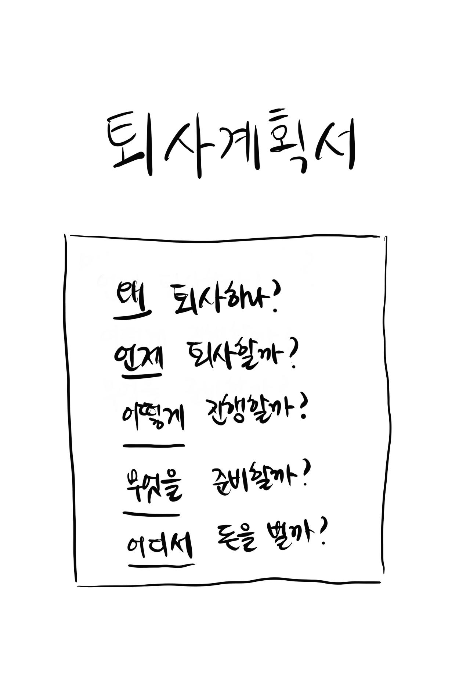 퇴사계획서
왜 퇴사하나?
언제 퇴사할까?
어떻게 진행할까?
무엇을 준비할까?
어디서 돈을 벌까?